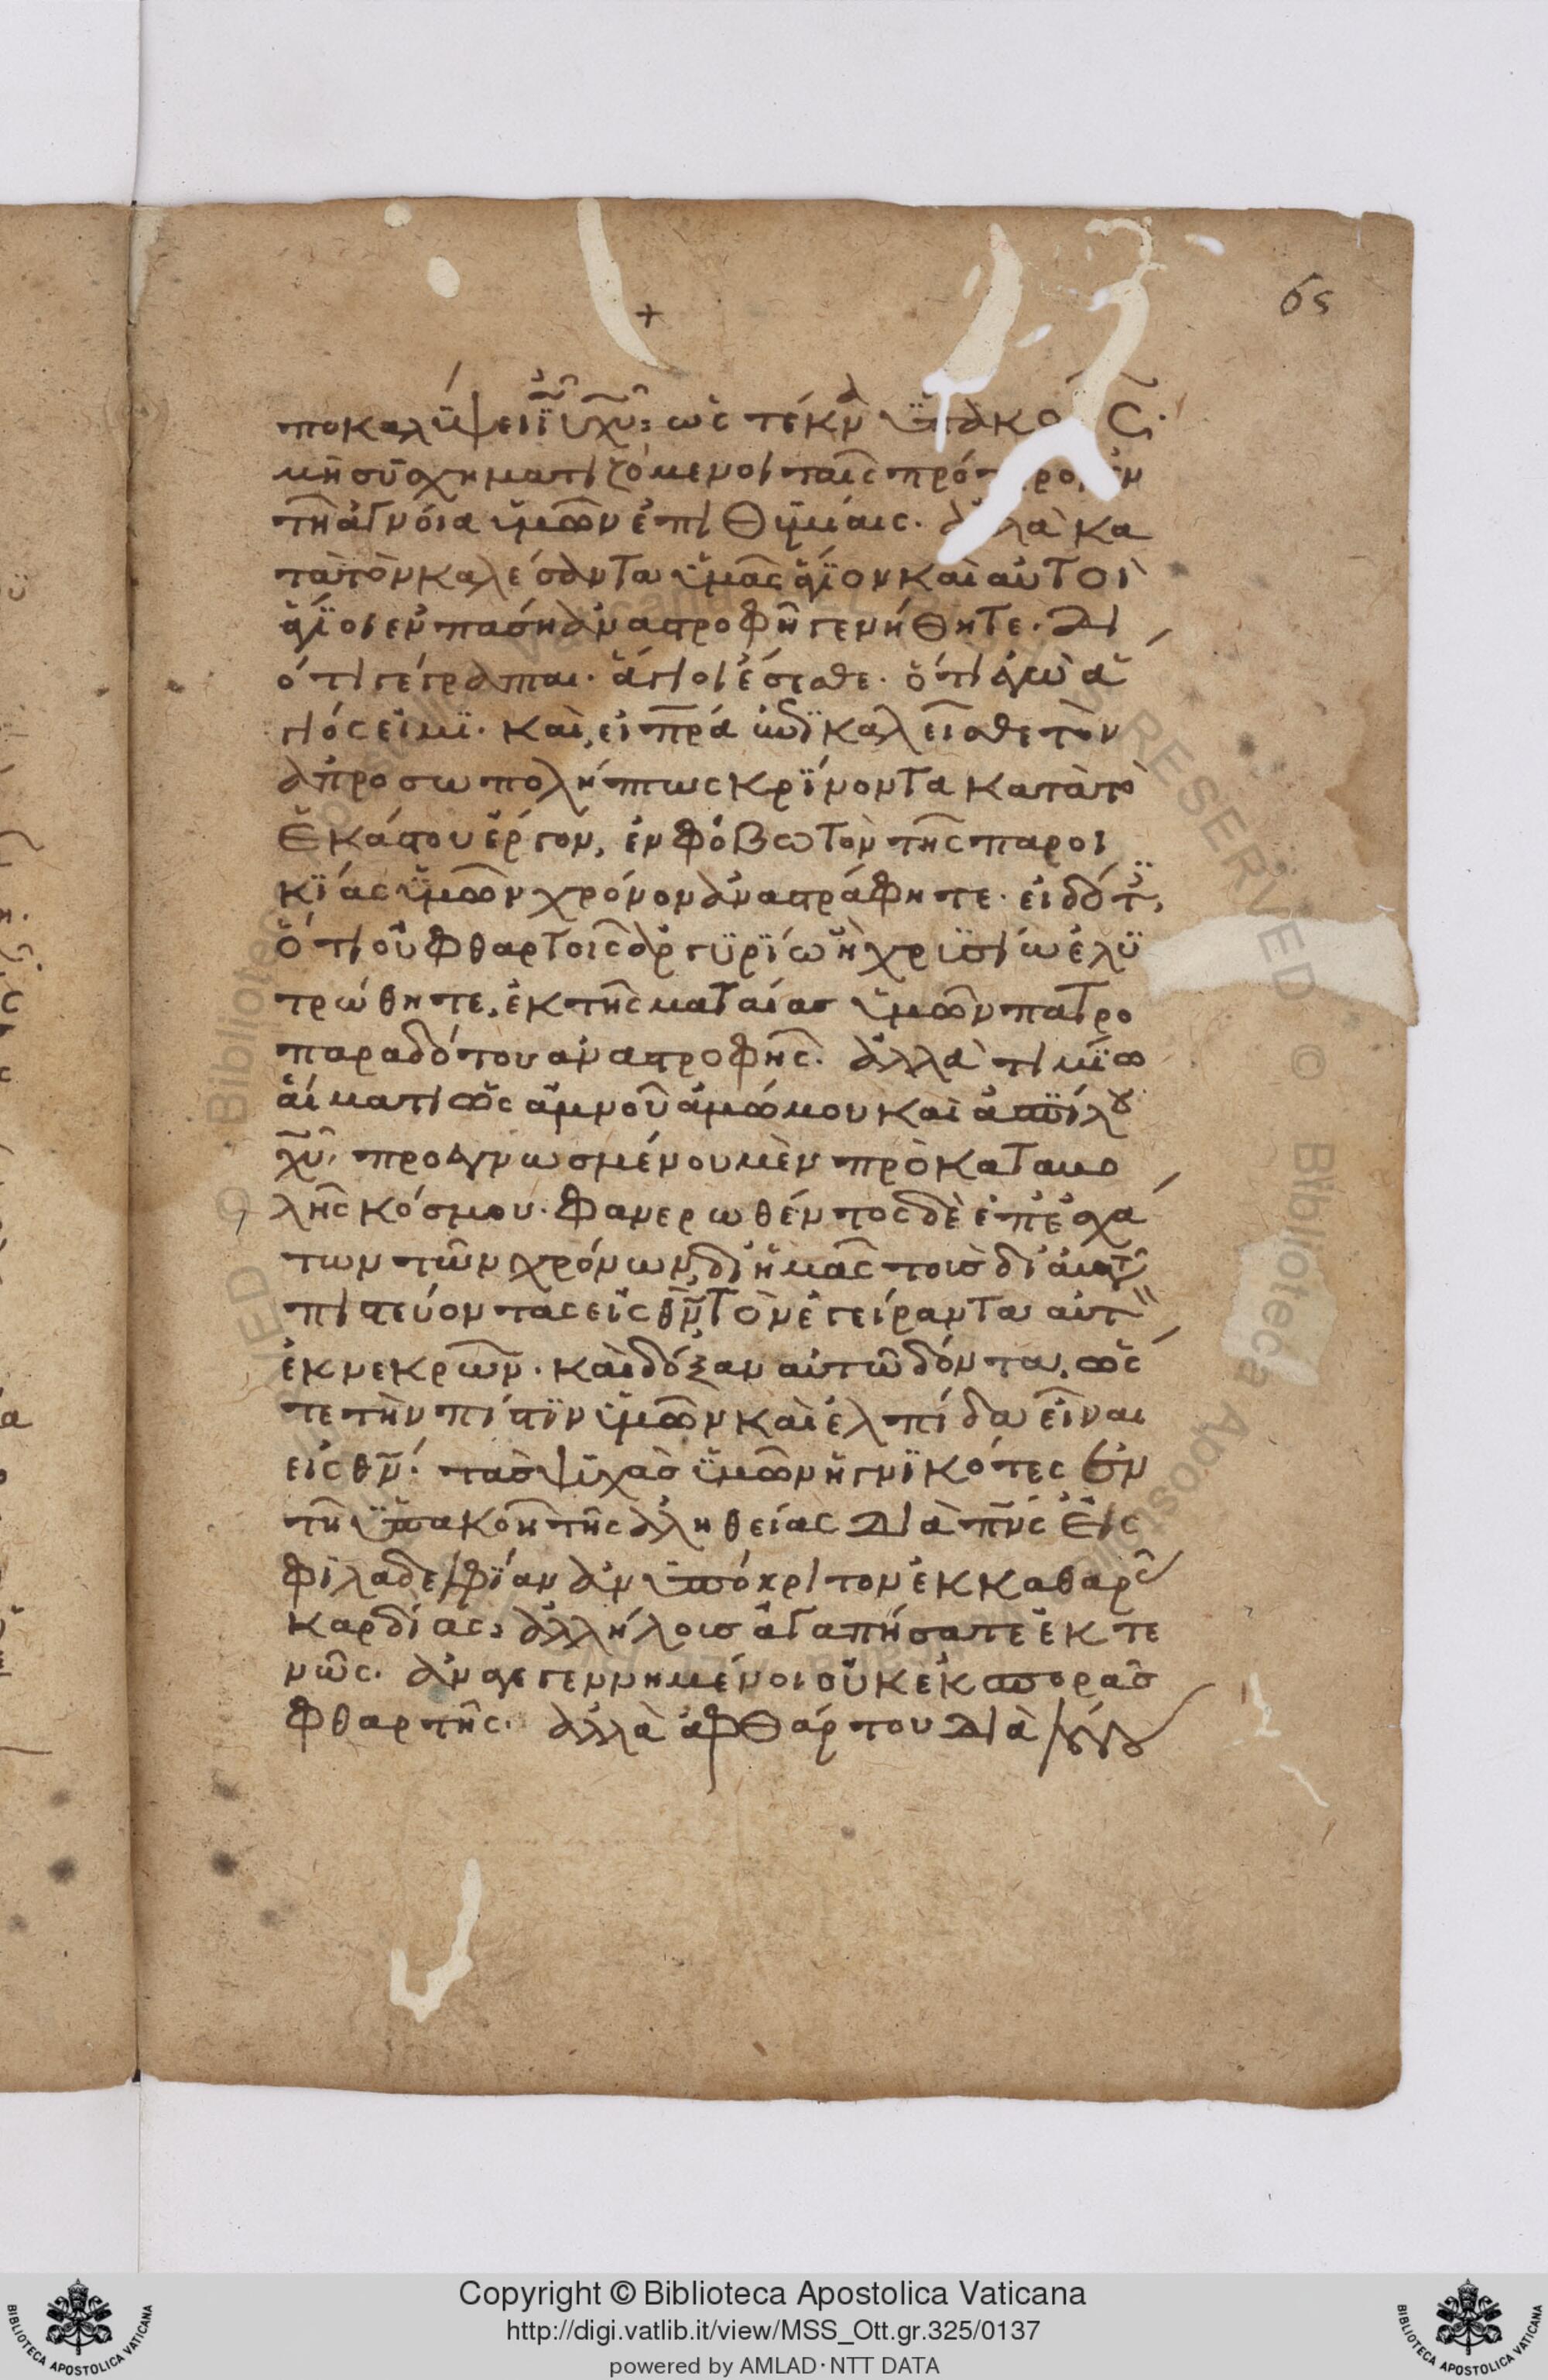 65
+
ποκαλύψει ἰῦ χῦ: ὡς τέκνα ὑπακο ς·
μὴ συσχηματιζόμενοι ταῖς πρότ ρον ἐν
τῆ ἀγνόια ὑμῶν ἐπιθυμίαις. ἀλλὰ κα
τὰ τὸν καλέσαντα ὑμᾶς ἅγϊον καὶ αὐτοὶ
ἅγϊοι ἐν πάση ἀναστροφῆ γενήθητε. δι
ότι γέγραπται. ἅγιοι ἔσεσθε. ὅτι ἐγὼ ἅ
γιός εἰμϊ. καὶ, εἰ πρα καλεῖσθε τὸν
ἀπροσωπολήπτως κρίνοντα κατὰ τὸ
ἑκάστου ἔργον, ἐν φόβω τὸν τῆς παροι
κϊάς ὑμῶν χρόνον ἀναστράφητε. εἰδότ,
ὅτι οὐ φθαρτοῖς ἀργυρϊω ἢ χρυσίω ἐλϋ
τρώθητε, ἐκ τῆς ματαίασ ὑμῶν πατρο
παραδότου αναστροφῆς. ἀλλὰ τιμϊω
αἵματι ὡς ἀμνοῦ ἀμώμου καὶ ἀσπίλου
χῦ, προεγνωσμένου μὲν πρὸ καταβο
λῆς κόσμου. φανερωθέντος δὲ ἐπ ἐσχά
των τῶν χρόνων, δι ἡμᾶς τοὺσ δι αὐτ
πιστεύοντας εἰς θν, τὸν ἐγείραντα αὐτ
ἐκ νεκρῶν. καὶ δόξαν αὐτῶ δόντα, ὥσ
τε τὴν πίστϊν ὑμῶν καὶ ἐλπίδα εἶναι
εἰς θν. τὰσ ψϋχὰσ ὑμῶν ἡγνϊκότες ἐν
τῆ ὑπακοῆ τῆς ἀληθείας διὰ πνς εἰς
φιλαδελφϊαν ἀνυπόκριτον ἐκ καθαρᾶς
καρδίας, ἀλλήλουσ ἀγαπήσατε ἐκτε
νῶς. ἀναγεγεννημένοι οὐκ ἐκ σπορᾶσ
φθαρτῆς. ἀλλὰ ἀφθάρτου διὰ λόγου
Copyright © Biblioteca Apostolica Vaticana
http://digi.vatlib.it/view/MSS_Ott.gr.325/0137
powered by AMLAD·NTT DATA
BIBLIOTECA APOSTOLICA VATICANA
BIBLIOTECA APOSTOLICA VATICANA